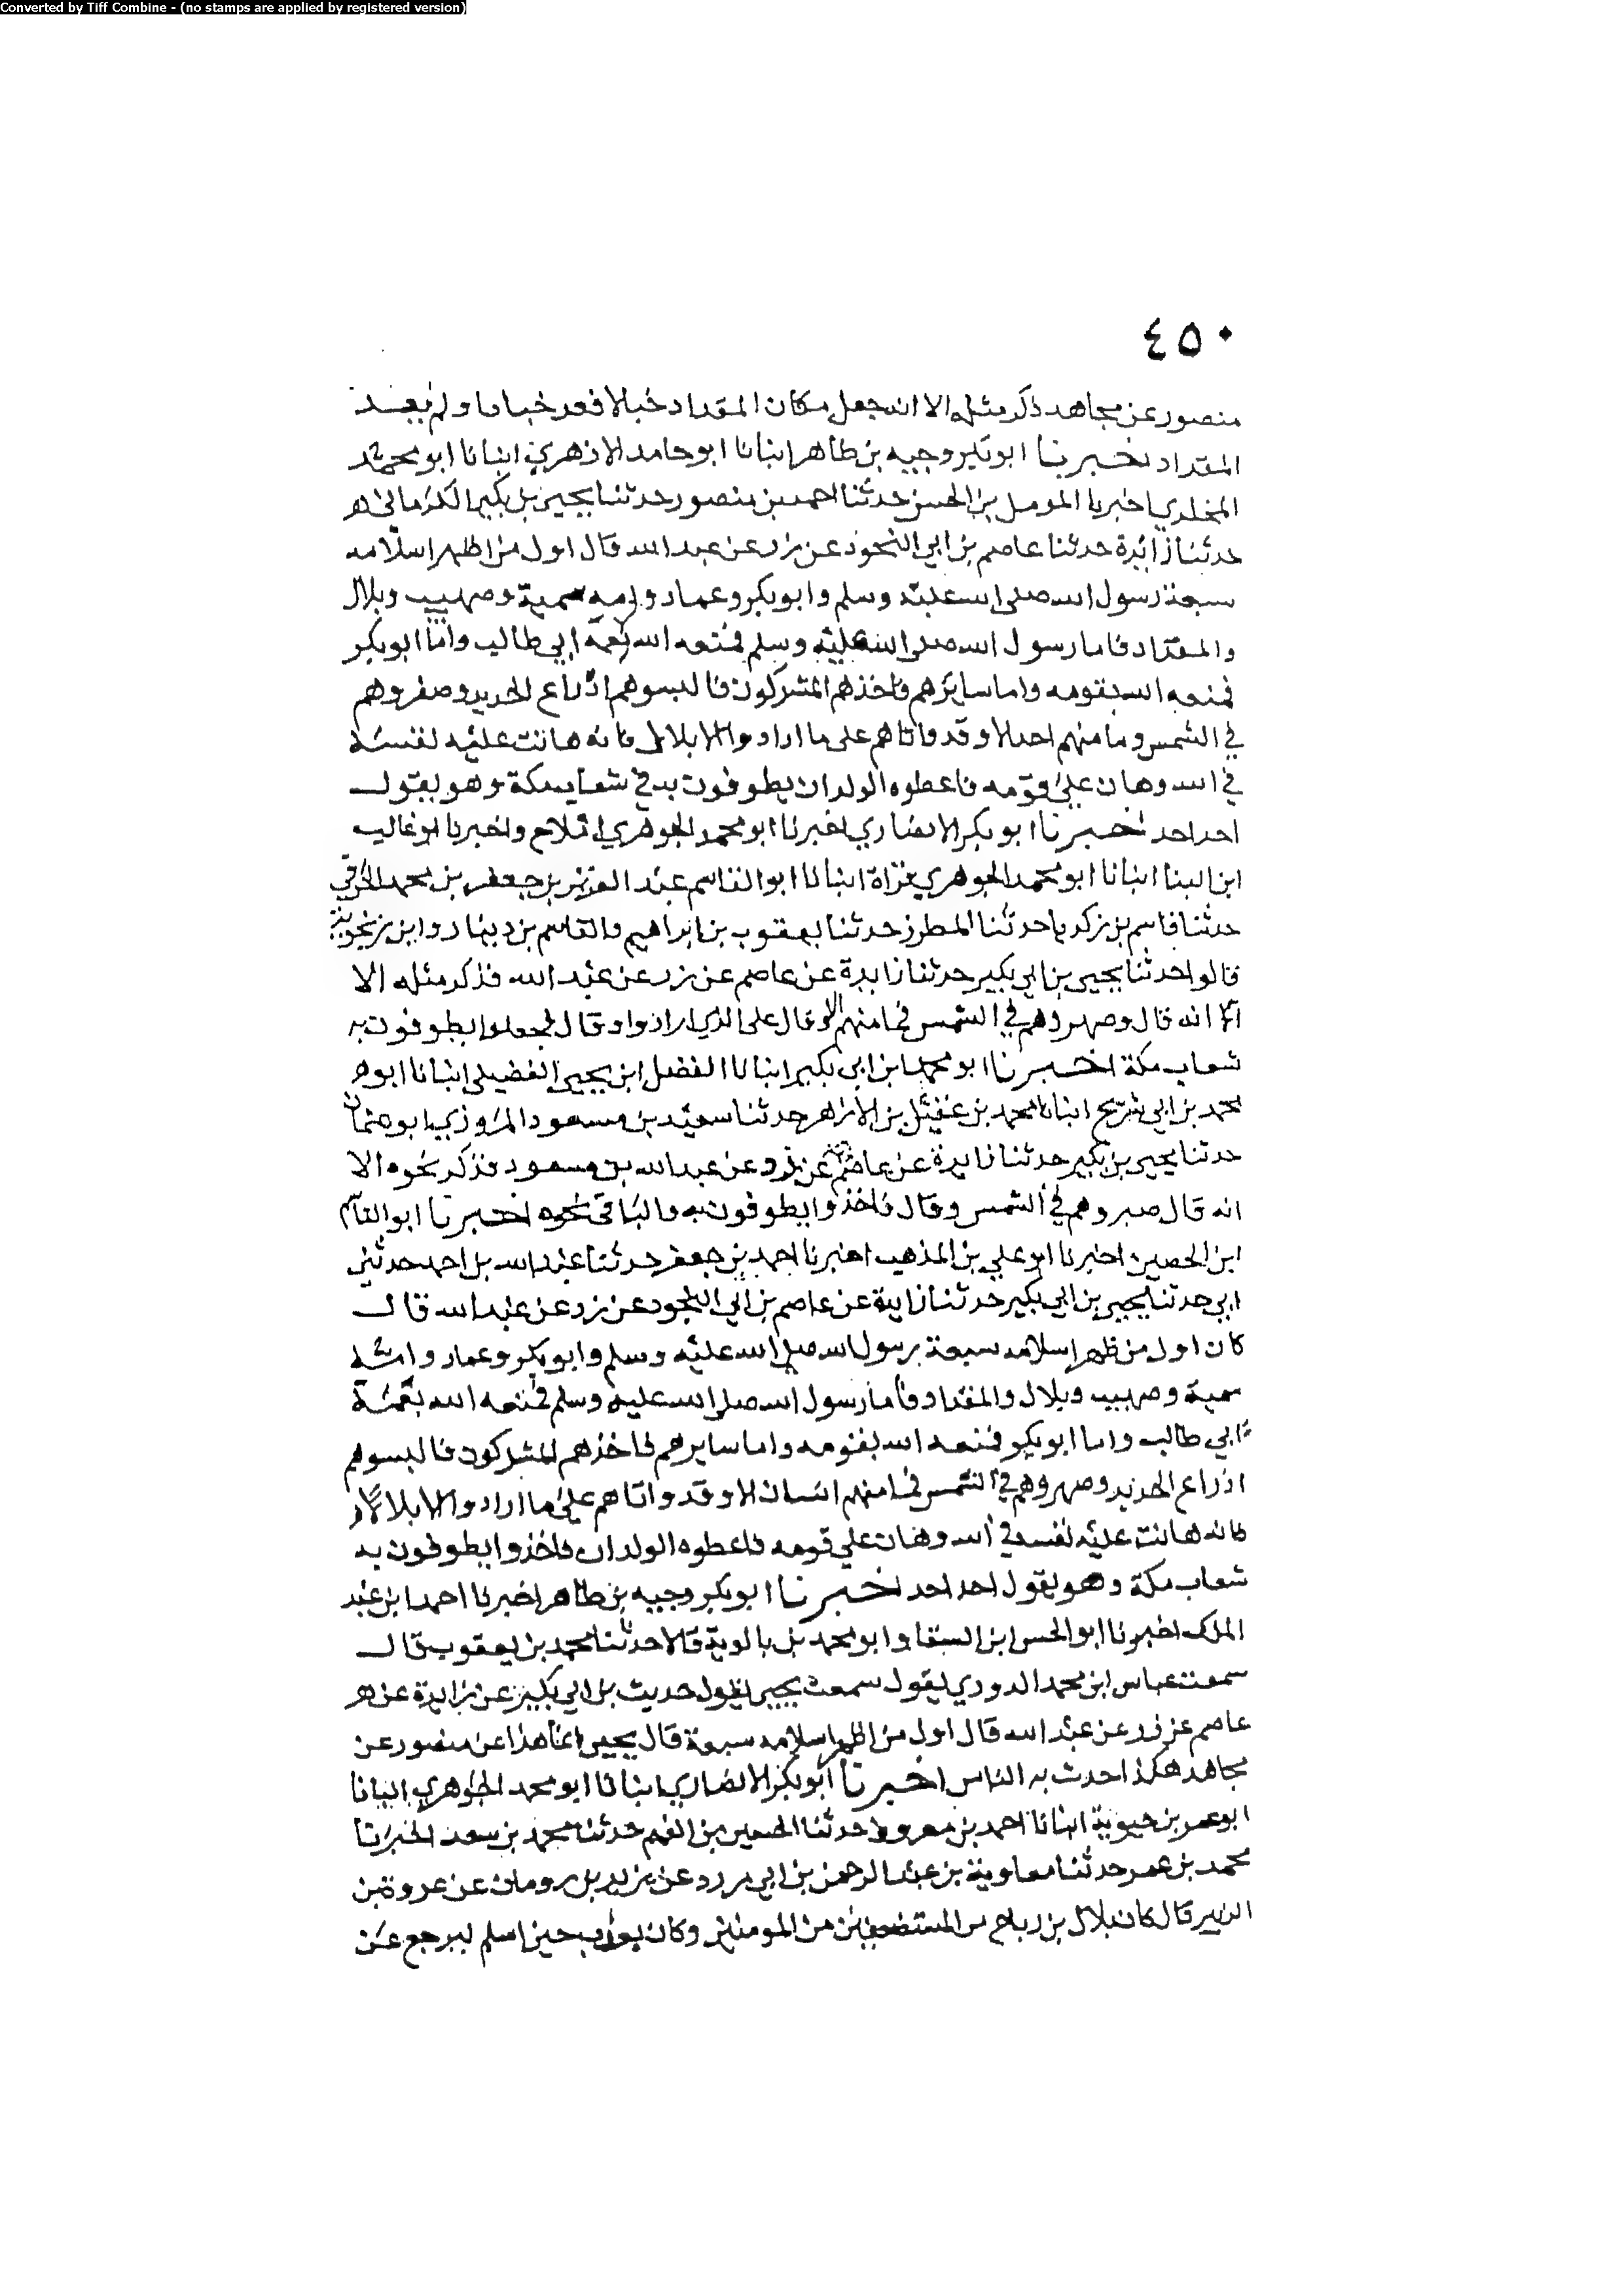 Converted by Tiff Combine - (no stamps are applied by registered version)
٤٥٠
منصور عن مجاهد ذكر مثله الا انه جعل مكان المقداد خبابا فعد خبابا ولم يعد
المقداد اخبرنا ابو بكر وجيه بن طاهر انبانا ابو حامد الازهري انبانا ابو محمد
المخلدي اخبرنا المومل بن الحسن حدثنا احمد بن منصور حدثنا يحيى بن بكير الكرماني
حدثنا زائدة حدثنا عاصم بن ابي النجود عن زر عن عبد الله قال اول من اظهر اسلامه
سبعة رسول الله صلى الله عليه وسلم وابو بكر وعمار وامه سمية وصهيب وبلال
والمقداد فاما رسول الله صلى الله عليه وسلم فمنعه الله بعمه ابي طالب واما ابو بكر
فمنعه الله بقومه واما سائرهم فاخذهم المشركون فالبسوهم ادراع الحديد وصفروهم
في الشمس وما منهم احد الا وقد واتاهم على ما ارادوا الا بلال فانه هانت عليه نفسه
في الله وهان على قومه فاعطوه الولدان يطوفون به في شعاب مكة وهو يقول
احد احد اخبرنا ابو بكر الانصاري اخبرنا ابو محمد الجوهري املاء واخبرنا ابو غالب
ابن البنا انبانا ابو محمد الجوهري قراة انبانا ابو القاسم عبد العزيز بن جعفر بن محمد الخرقي
حدثنا قاسم بن زكريا حدثنا المطرز حدثنا يعقوب بن ابراهيم والقاسم بن دينار وابن زنجويه
قالوا حدثنا يحيى بن ابي بكير حدثنا زايدة عن عاصم عن زر عن عبد الله فذكر مثله الا
انه قال وصهروهم في الشمس فما منهم الا وقال على الذي ارادوا وقال فجعلوا يطوفون به
شعاب مكة اخبرنا ابو محمد ابن ابي بكير انبانا الفضل ابن يحيى الفضيلي انبانا ابو
محمد بن ابي شريح انبانا محمد بن عقيل بن الازهر حدثنا سعيد بن مسعود المروزي ابو عثمان
حدثنا يحيى بن بكير حدثنا زايدة عن عاصم عن زر عن عبد الله بن مسعود فذكر نحوه الا
انه قال صبروهم في الشمس وقال فاخذوا يطوفون به والباقي نحوه اخبرنا ابو القاسم
ابن الحصين اخبرنا ابو علي بن المذهب اخبرنا احمد بن جعفر حدثنا عبد الله بن احمد حدثني
ابي حدثنا يحيى بن ابي بكير حدثنا زايدة عن عاصم بن ابي النجود عن زر عن عبد الله قال
كان اول من ظهر اسلامه سبعة رسول الله صلى الله عليه وسلم وابو بكر وعمار وامه
سمية وصهيب وبلال والمقداد فاما رسول الله صلى الله عليه وسلم فمنعه الله بعمه
ابي طالب واما ابو بكر فمنعه الله بقومه واما سايرهم فاخذهم المشركون فالبسوهم
ادراع الحديد وصهروهم في الشمس فما منهم انسان الا وقد واتاهم على ما ارادوا الا بلالا
فانه هانت عليه نفسه في الله وهان على قومه فاعطوه الولدان فاخذوا يطوفون به
شعاب مكة وهو يقول احد احد اخبرنا ابو بكر وجيه بن طاهر اخبرنا احمد ابن عبد
الملك اخبرنا ابو الحسن ابن السقا وابو محمد بن بالوية قالا حدثنا محمد بن يعقوب قال
سمعت عباس ابن محمد الدوري يقول سمعت يحيى يقول حديث بن ابي بكير عن زايدة عن
عاصم عن زر عن عبد الله قال اول من اظهر اسلامه سبعة قال يحيى انما هذا عن منصور عن
مجاهد هكذا حدث به الناس اخبرنا ابو بكر الانصاري انبانا ابو محمد الجوهري انبانا
ابو عمر بن حيوية انبانا احمد بن معروف حدثنا الحسين بن الفهم حدثنا محمد بن سعد اخبرنا
محمد بن عمر حدثنا معاوية بن عبد الرحمن بن ابي مررد عن يزيد بن رومان عن عروة بن
الزبير قال كان بلال بن رباح من المستضعفين من المومنين وكان يعذب حين اسلم ليرجع عن